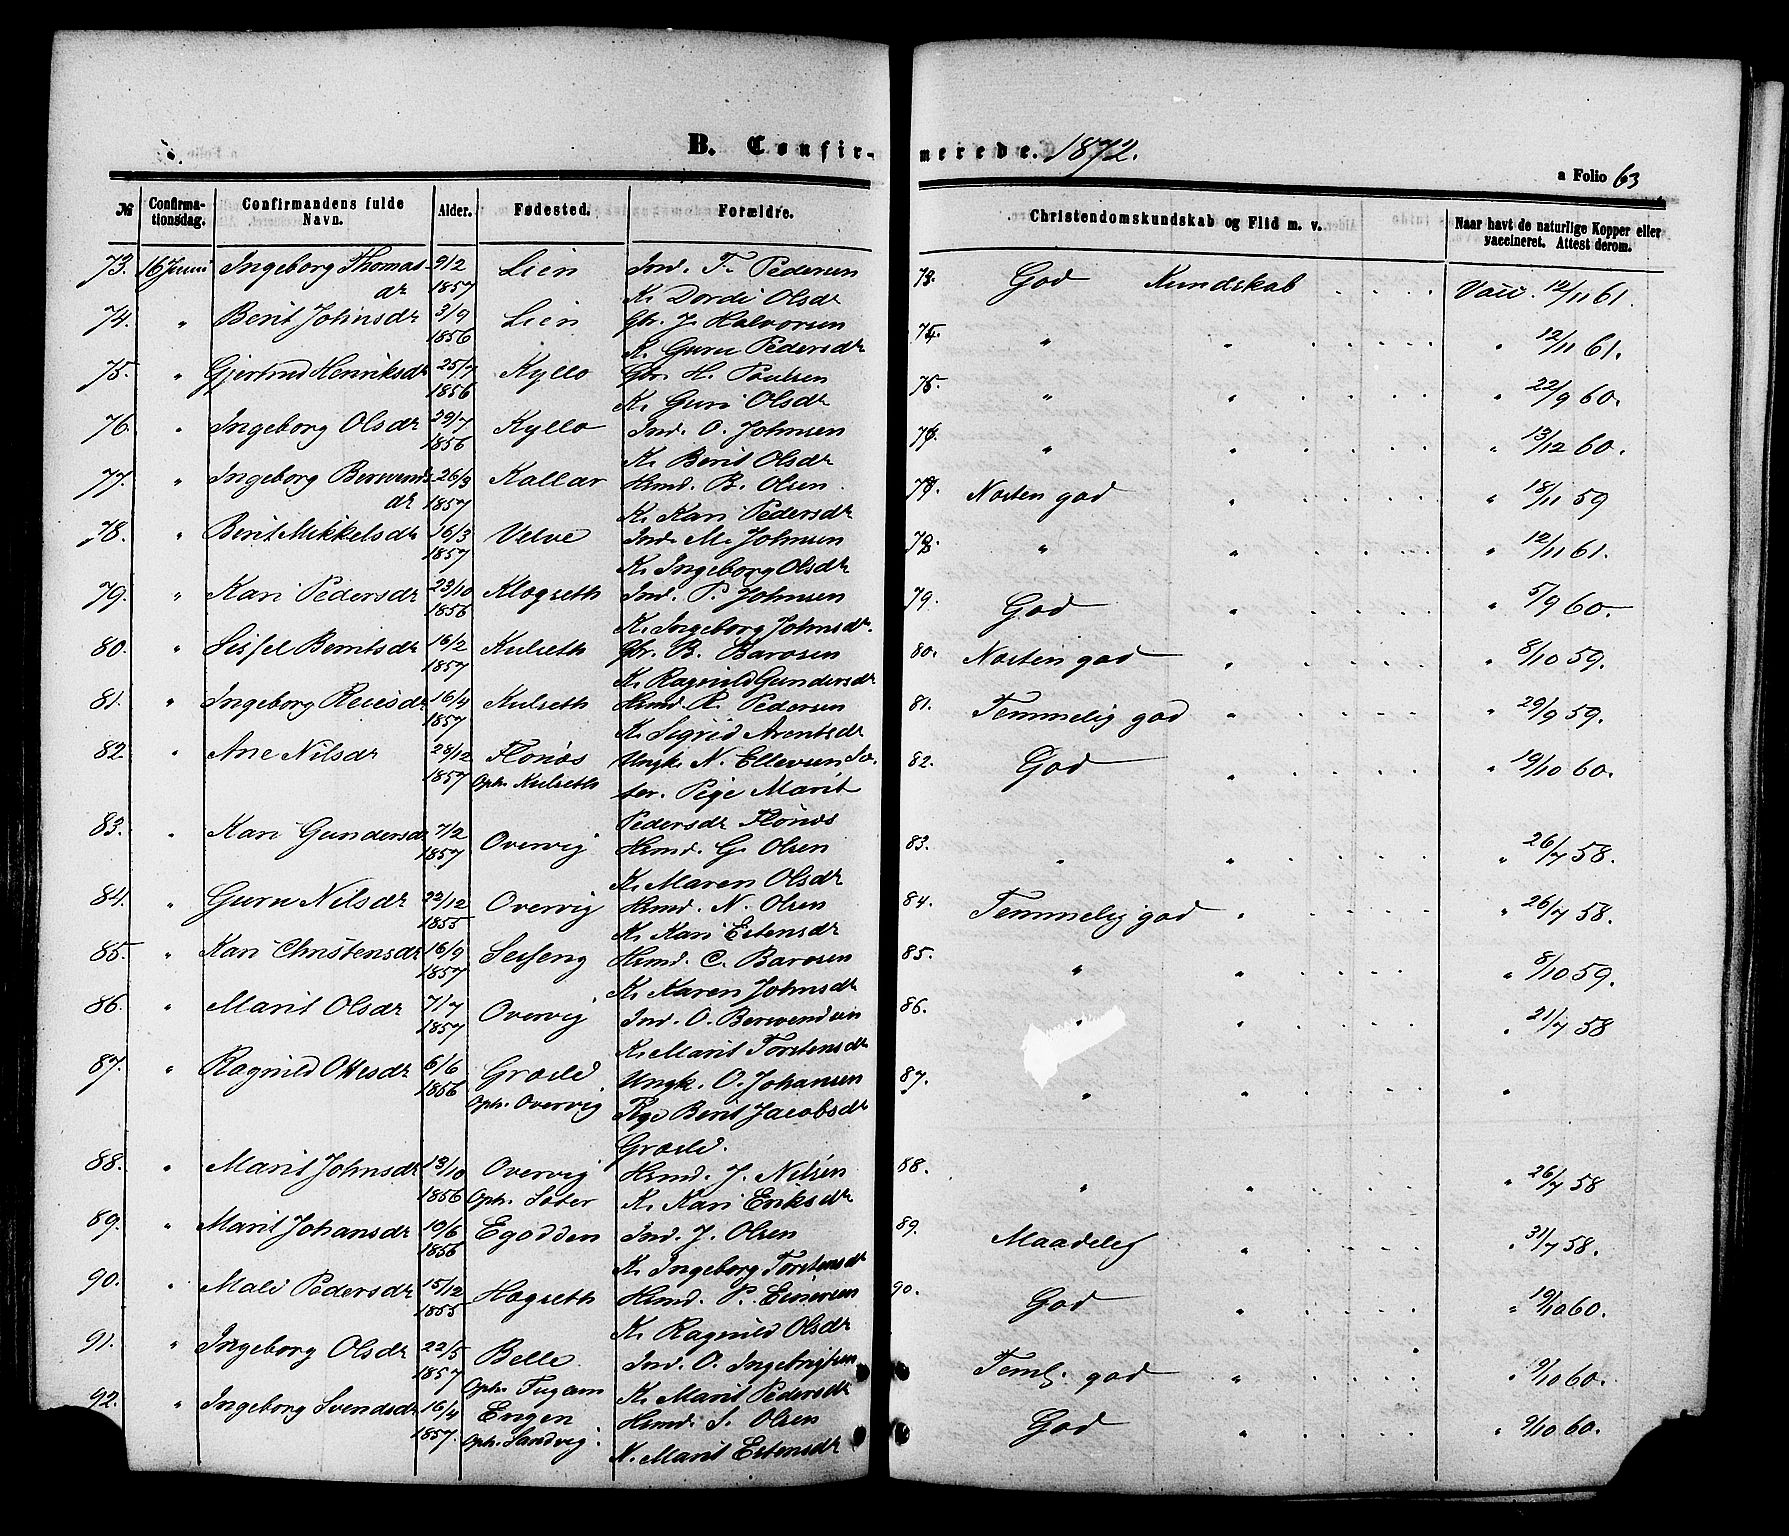 B. Confir- merede. 1872.
a Folio 63
№ Confirma-tionsdag. Confirmandens fulde Navn. Alder. Fødested. Forældre. Christendomskundskab og Flid m. v. Naar havt de naturlige Kopper eller vaccineret. Attest derom.
73. 16 Juni Ingeborg Thomas 9/2 Lien Ind. T. Pedersen 73. God Kundskab . . . . Vacc. 12/11 61.
dr 1857 K. Dordi Olsdr
74. " Berit Johnsdr 3/9 Lien Gbr. J. Halvorsen 74. " " . . . . " 12/11 61.
1856 K. Guru Pedersdr
75. " Gjertrud Henriksdr 25/7 Kyllo Gbr. H. Paulsen 75. " " . . . . " 22/9 60.
1856 K. Guri Olsdr
76. " Ingeborg Olsdr 29/7 Kyllo Ind. O. Johnsen 76. " " . . . . " 13/12 60.
1856 K. Berit Olsdr
77. " Ingeborg Berwends 26/3 Kallar Hsmd. B. Olsen 77. Næsten god " . . . . " 18/11 59
dr 1857 K. Kari Pedersdr
78. " Berit Mikkelsdr 16/3 Velve Ind. M. Johnsen 78. " " . . . . " 12/11 61.
1857 K. Ingeborg Olsdr
79. " Kari Pedersdr 23/10 Klogseth Ind. P. Johnsen 79. God " . . . . " 5/9 60.
1856 K. Ingeborg Johnsdr.
80. " Sissel Berntsdr 16/2 Kulseth Gbr. B. Barosen 80. Næsten god " . . . . " 8/10 59.
1857 K. Ragnild Gundersdr
81. " Ingeborg Reiersdr 16/4 Kulseth Hsmd. R. Pedersen 81. Temmelig god " . . . . " 29/9 59.
1857 K. Sigrid Arentsdr
82. " Ane Nilsdr 28/12 Flønæs Ungk. N. Ellevsen Sæ- 82. God " . . . . " 19/10 60.
1857 Oph. Kulseth ter. Pige Marit
Pedersdr Flønæs
83. " Kari Gundersdr 7/2 Overvig Hsmd. G. Olsen 83. " " . . . . " 26/7 58.
1857 K. Maren Olsdr
84. " Guru Nilsdr 22/12 Overvig Hsmd. N. Olsen 84. Temmelig god " . . . . " 26/7 58.
1855 K. Kari Estensdr
85. " Kari Christensdr 16/9 Hsmd. C. Barosen 85. " " . . . . " 8/10 59.
1857 K. Karen Johnsdr
86. " Marit Olsdr 7/7 Overvig Ind. O. Berwendsen 86. " " . . . . " 21/7 58
1857 K. Marit Torstensdr
87. " Ragnild Ottesdr 6/6 Græsli Ungk. O. Johansen 87. " " . . . . "
1856 Oph. Overvig Pige Berit Jacobsdr
Græsli.
88. " Marit Johnsdr 13/10 Overvig Hsmd. J. Nilsen 88. " " . . . . " 26/7 58
1856 Oph. Sæter K. Kari Eriksdr
89. " Marit Johansdr 10/6 Egodden Ind. J. Olsen 89. Maadelig " . . . . " 31/7 58.
1856 K. Ingeborg Torstensdr
90. " Mali Pedersdr 15/12 Hogseth Hsmd. P. Einersen 90. God " . . . . " 19/10 60.
1855 K. Ragnild Olsdr
91. " Ingeborg Olsdr 22/5 Belle Ind. O. Ingebrigtsen Teml. god " . . . . " 9/10 60.
1857 Oph. Fugaæm K. Marit Pedersdr
92. " Ingeborg Svendsdr 16/4 Engen Hsmd. S. Olsen God " . . . . " 9/10 60.
1857. Oph. Sandvig. K. Marit Estensdr